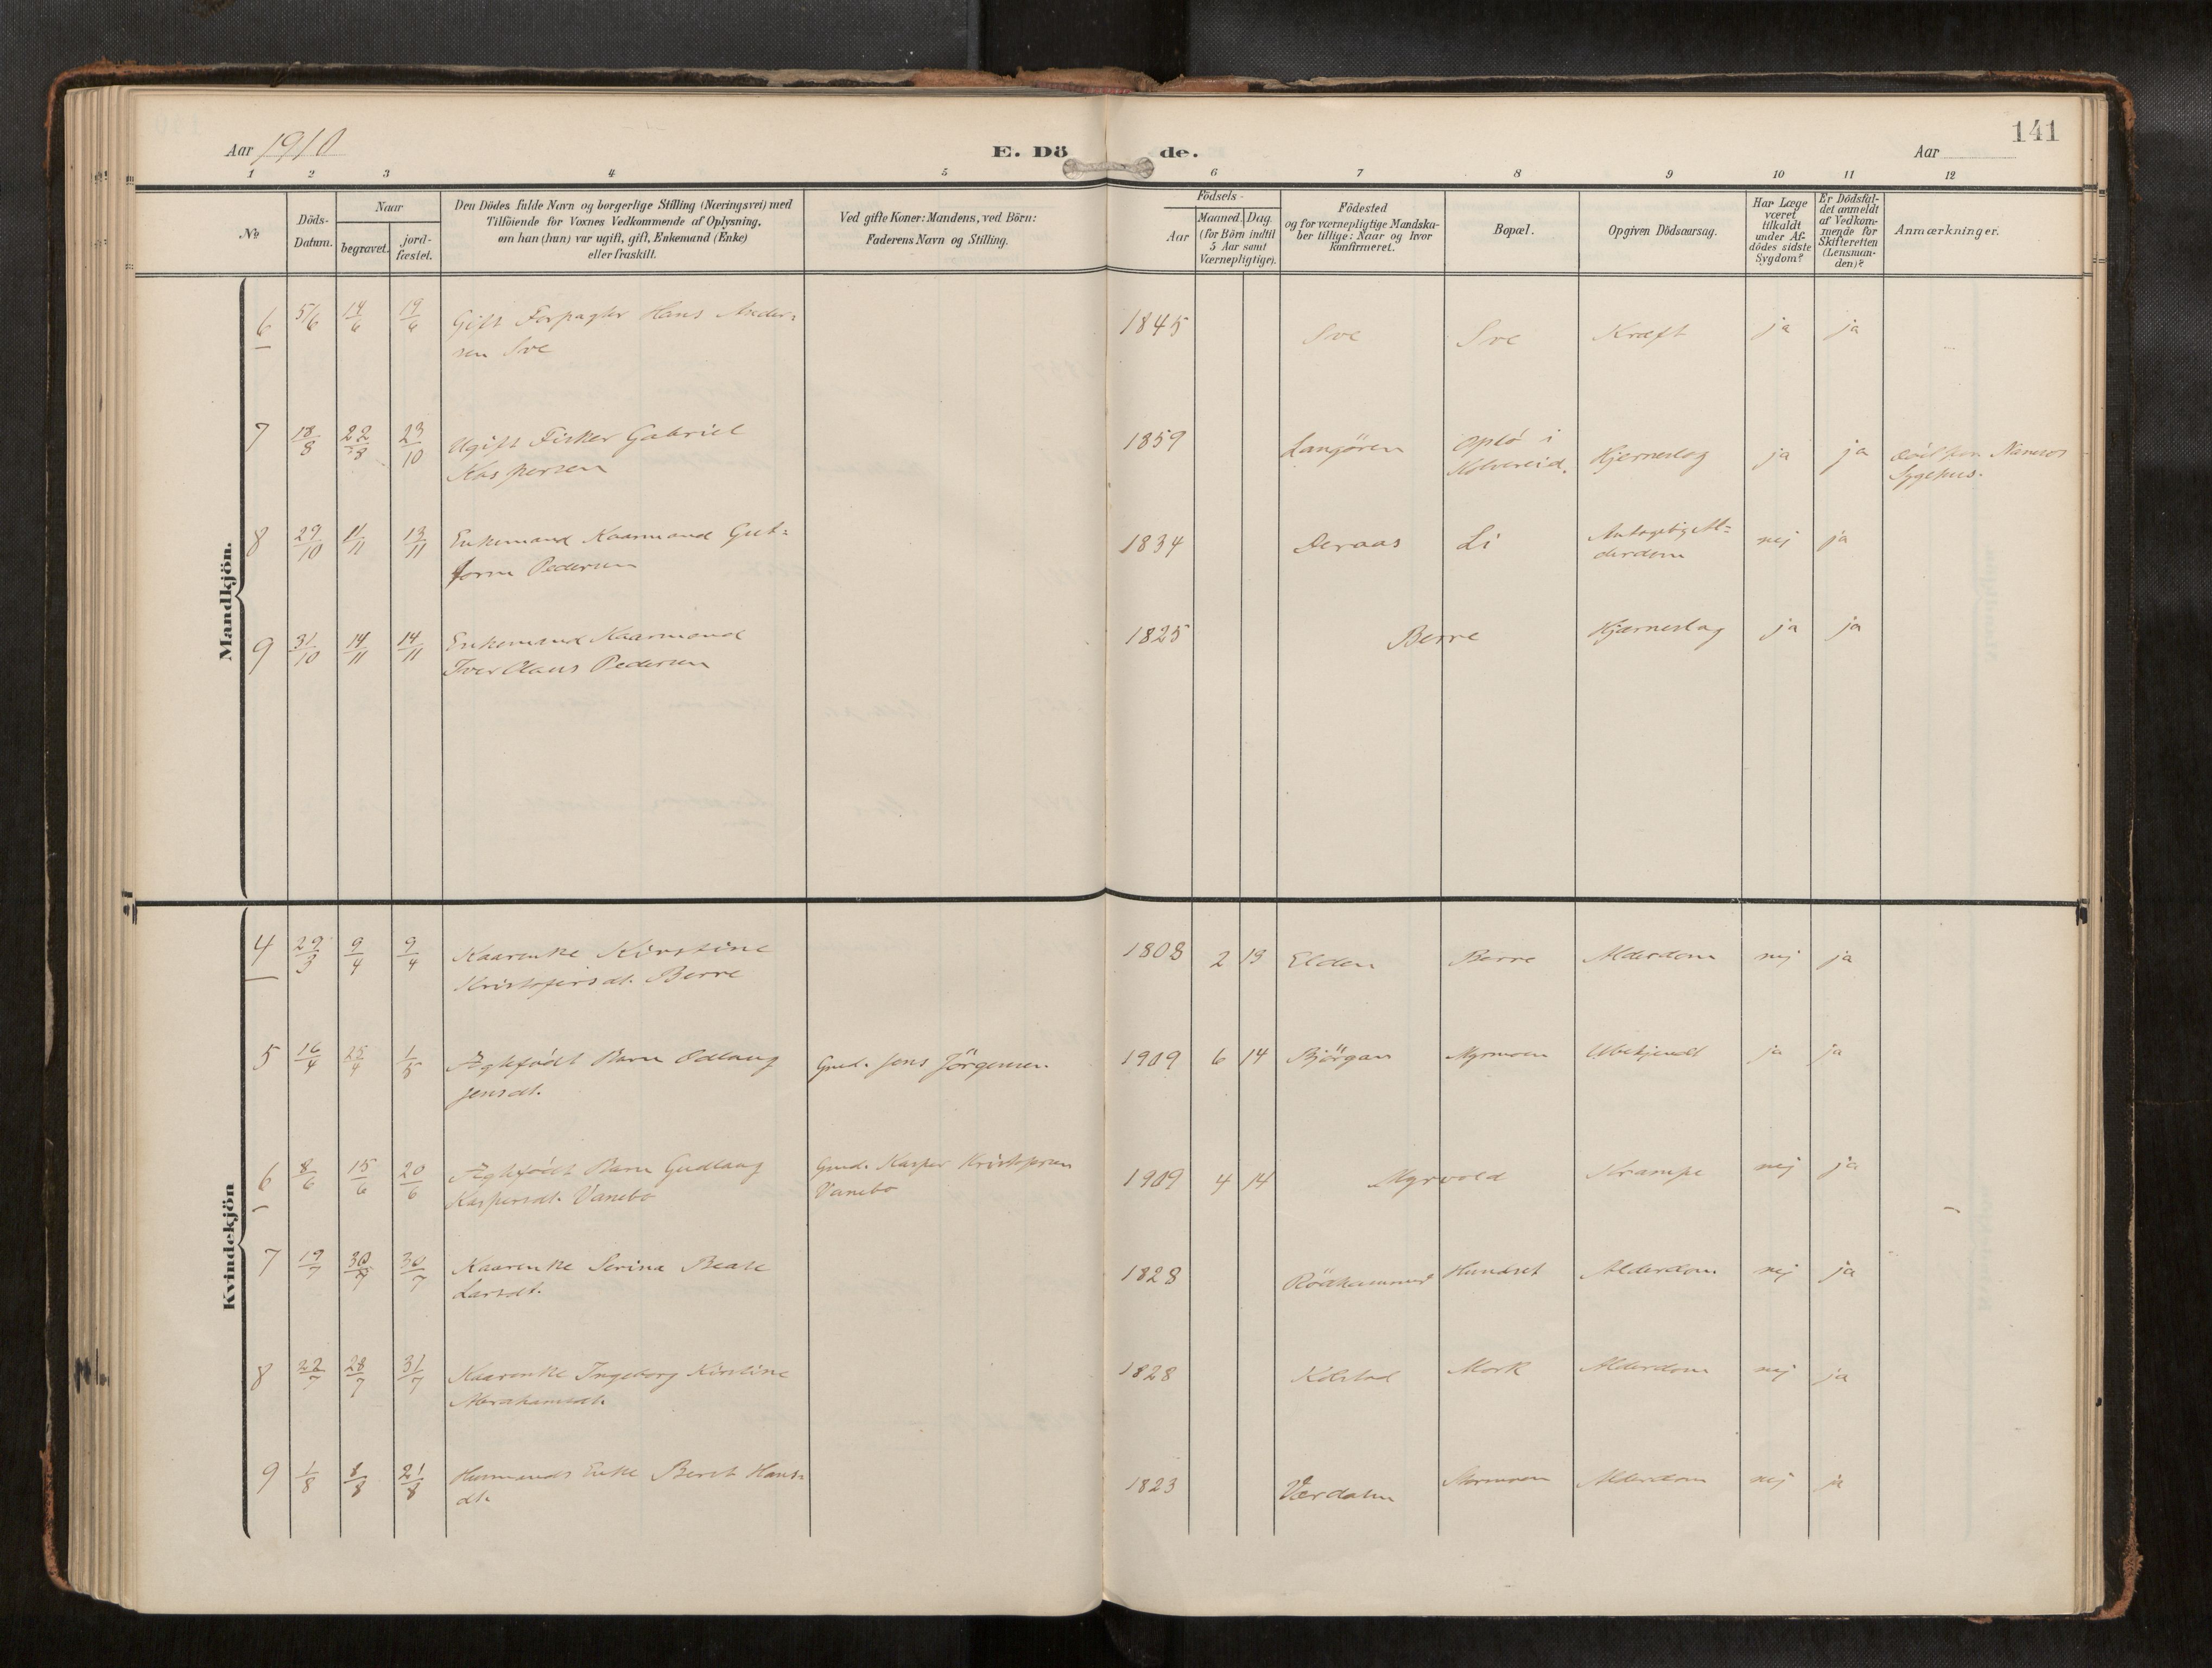 141
Aar 1910
E. Dö
de.
Aar
1 2 3 4 5 6 7 8 9 10 11 12
No
Döds-
Datum.
Naar
begravet.
jord-
fæstet.
Den Dödes fulde Navn og borgerlige Stilling (Næringsvei) med
Tilföiende for Voxnes Vedkommende af Oplysning,
om han (hun) var ugift, gift, Enkemand (Enke)
eller fraskilt.
Ved gifte Koner: Mandens, ved Börn:
Faderens Navn og Stilling.
Födsels-
Aar
Maaned. Dag.
(for Börn indtil
5 Aar samt
Værnepligtige).
Födested
og for værnepligtige Mandska-
ber tillige: Naar og hvor
konfirmeret.
Bopæl.
Opgiven Dödsaarsag.
Har Læge
været
tilkaldt
under Af-
dödes sidste
Sygdom?
Er Dödsfal-
det anmeldt
af Vedkom-
mende for
Skifteretten
(Lensman-
den)?
Anmærkninger.
Mandkjön.
6 5/6 14/6 19/6 Gift Forpagter Hans Ander= 1845 Sve Sve Kræft ja ja
sen Sve
7 18/8 22/8 23/10 Ugift Fisker Gabriel 1859 Langören Oplö i Hjerneslag ja ja död paa Namsos
Kaspersen Kolvereid. Sygehus.
8 29/10 11/11 13/11 Enkemand Kaarmand Gut= 1834 Aeraas Li Antagelig Al= nej ja
form Pedersen derdom
9 31/10 14/11 14/11 Enkemand Kaarmand 1825 Berre Hjærneslag ja ja
Iver Claus Pedersen
Kvindekjön
4 29/3 9/4 9/4 Kaarenke Kirstine 1808 2 19 Elden Berre Alderdom nej ja
Kristofersdt. Berre
5 16/4 25/4 1/5 Ægtefödt Barn Odlaug Gmd. Jens Jörgensen. 1909 6 14 Björgan Myrmoen Ubekjendt ja ja
Jensdt.
6 8/6 15/6 20/6 Ægtefödt Barn Gudlaug Gmd. Kasper Kristofersen 1909 4 14 Myrvold Krampe nej ja
Kaspersdt. Vanebo Vanebo
7 19/7 30/7 30/7 Kaarenke Serina Beate 1828 Rödhammer Hundset Alderdom nej ja
Larsdt.
8 22/7 28/7 31/7 Kaarenke Ingeborg Kirstine 1828 Kolstad Mork Alderdom nej ja
Abrahamsdt.
9 1/8 8/8 21/8 Husmands Enke Beret Hans= 1823 Værdalen Alderdom nej ja
dt.